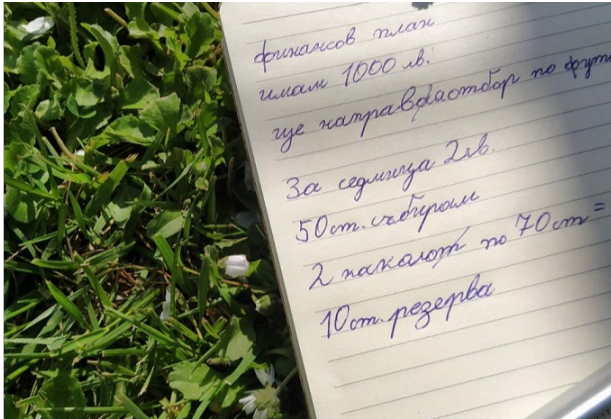 финансов план
имам 1000 лв.
ще направя отбор по фут
За седмица 2лв.
50ст. събирам
2 какаот по 70ст =
10ст. резерва